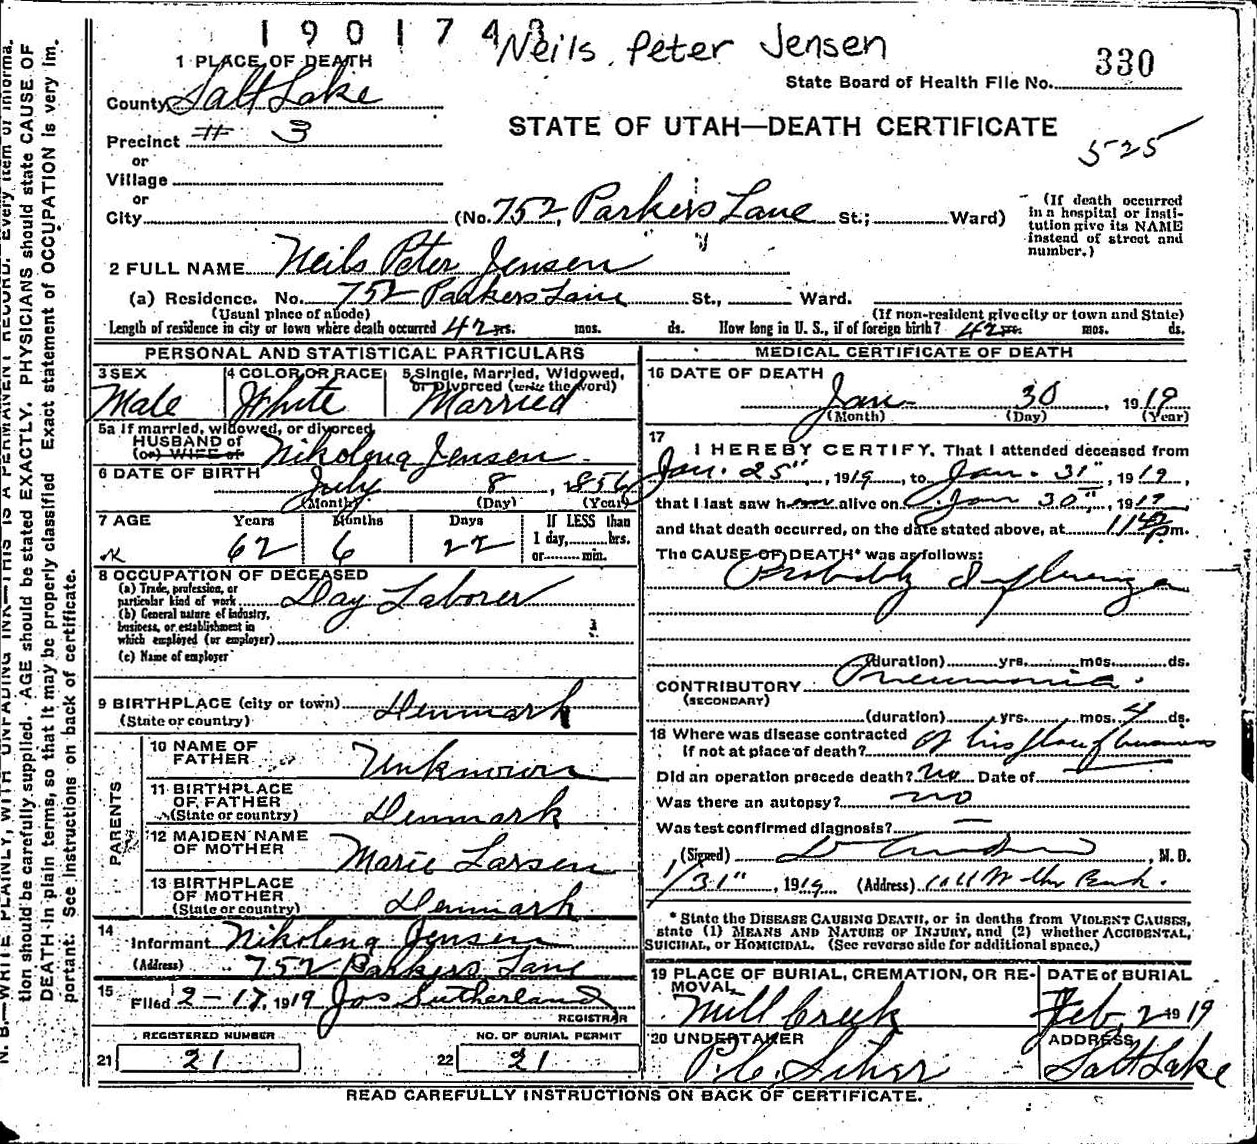 190174
Neils Peter Jensen
1 PLACE OF DEATH
330
State Board of Health File No.
County Salt Lake
STATE OF UTAH—DEATH CERTIFICATE
Precinct # 3
525
or
Village
or
City (No. 752 Parkers Lane St.; Ward)
(If death occurred in a hospital or insti-tution give its NAME instead of street and number.)
2 FULL NAME Neils Peter Jensen
(a) Residence. No. 752 Parkers Lane St., Ward.
(Usual place of abode) (If non-resident give city or town and State)
Length of residence in city or town where death occurred 42 yrs. mos. ds. How long in U. S., if of foreign birth? 42 yrs. mos. ds.
PERSONAL AND STATISTICAL PARTICULARS
3 SEX
Male
4 COLOR OR RACE
White
5 Single, Married, Widowed,
or Divorced (write the word)
Married
5a If married, widowed, or divorced
HUSBAND of
(or) WIFE of Nikolena Jensen
6 DATE OF BIRTH
July 8, 1856
(Month) (Day) (Year)
7 AGE Years Months Days If LESS than
62 6 22 1 day, hrs.
or min.
8 OCCUPATION OF DECEASED
(a) Trade, profession, or
particular kind of work Day Laborer
(b) General nature of industry,
business, or establishment in
which employed (or employer)
(c) Name of employer
9 BIRTHPLACE (city or town) Denmark
(State or country)
PARENTS
10 NAME OF
FATHER Unknown
11 BIRTHPLACE
OF FATHER Denmark
(State or country)
12 MAIDEN NAME
OF MOTHER Marie Larsen
13 BIRTHPLACE
OF MOTHER
(State or country) Denmark
14
Informant Nikolena Jensen
(Address) 752 Parkers Lane
15
Filed 2-17, 1919 Jos Sutherland
REGISTRAR
REGISTERED NUMBER NO. OF BURIAL PERMIT
21 21 22 21
MEDICAL CERTIFICATE OF DEATH
16 DATE OF DEATH
Jan 30, 1919
(Month) (Day) (Year)
17
I HEREBY CERTIFY, That I attended deceased from
Jan. 25", 1919, to Jan. 31", 1919,
that I last saw h alive on Jan 30", 1919
and that death occurred, on the date stated above, at m.
The CAUSE OF DEATH* was as follows:
Probably Influenza
(duration) yrs. mos. ds.
CONTRIBUTORY Pneumonia.
(SECONDARY)
(duration) yrs. mos. 4 ds.
18 Where was disease contracted
if not at place of death? at his place of business
Did an operation precede death? no Date of
Was there an autopsy? no
Was test confirmed diagnosis? —
(Signed) M. D.
1/31", 1919 (Address)
* State the DISEASE CAUSING DEATH, or in deaths from VIOLENT CAUSES,
state (1) MEANS AND NATURE OF INJURY, and (2) whether ACCIDENTAL,
SUICIDAL, or HOMICIDAL. (See reverse side for additional space.)
19 PLACE OF BURIAL, CREMATION, OR RE-
MOVAL
Mill Creek
DATE of BURIAL
Feb, 2 1919
20 UNDERTAKER
P.C.
ADDRESS
Salt Lake
READ CAREFULLY INSTRUCTIONS ON BACK OF CERTIFICATE.
N. B.—WRITE PLAINLY, WITH UNFADING INK—THIS IS A PERMANENT RECORD. Every item of informa-
tion should be carefully supplied. AGE should be stated EXACTLY. PHYSICIANS should state CAUSE OF
DEATH in plain terms, so that it may be properly classified. Exact statement of OCCUPATION is very im-
portant. See instructions on back of certificate.